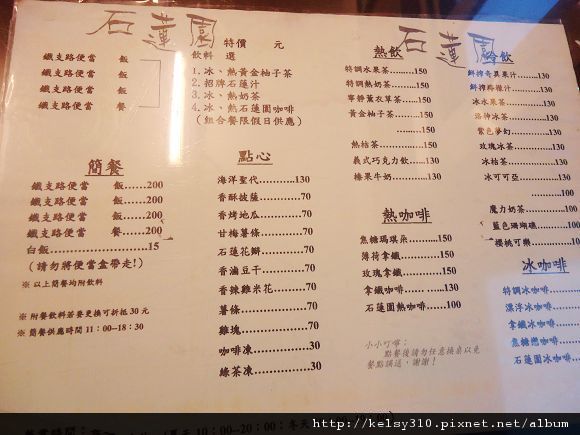 石蓮園
石蓮園
特價　元
鐵支路便當　飯
鐵支路便當　飯
鐵支路便當　飯
鐵支路便當　餐
飲料　選
1. 冰、熱黃金柚子茶
2. 招牌石蓮汁
3. 冰、熱奶茶
4. 冰、熱石蓮園咖啡
(組合餐限假日供應)
簡餐
鐵支路便當　飯......200
鐵支路便當　飯......200
鐵支路便當　飯......200
鐵支路便當　餐......200
白飯..................15
(請勿將便當盒帶走!)
※ 以上簡餐均附飲料
※ 附餐飲料若要更換可折抵 30 元
※ 簡餐供應時間 11:00--18:30
點心
海洋聖代............130
香酥披薩............70
香烤地瓜............70
甘梅薯條............70
石蓮花酥............70
香滷豆干............70
香辣雞米花.........70
薯條..................70
雞塊..................70
咖啡凍...............30
綠茶凍...............30
熱飲
特調水果茶.........150
特調熱奶茶.........150
寧靜薰衣草茶......150
黃金柚子茶.........150
.........150
熱桔茶...............150
義式巧克力飲......150
榛果牛奶............150
熱咖啡
焦糖瑪琪朵.........150
薄荷拿鐵............150
玫瑰拿鐵............150
拿鐵咖啡............130
石蓮園熱咖啡......100
小小叮嚀:
點餐後請勿任意換桌以免
餐點誤送,謝謝!
冷飲
鮮搾奇異果汁......130
鮮搾檸檬汁.........130
冰水果茶............130
洛神冰茶............130
紫色夢幻............130
玫瑰冰茶............130
冰桔茶...............130
冰可可亞............130
.........100
魔力奶茶............100
藍色珊瑚礁.........100
櫻桃可樂............100
冰咖啡
特調冰咖啡
漂浮冰咖啡
拿鐵冰咖啡
焦糖戀咖啡
石蓮園冰咖啡
營業時間: 夏天 10:00--20:00:冬天
http://kelsy310.pixnet.net/album